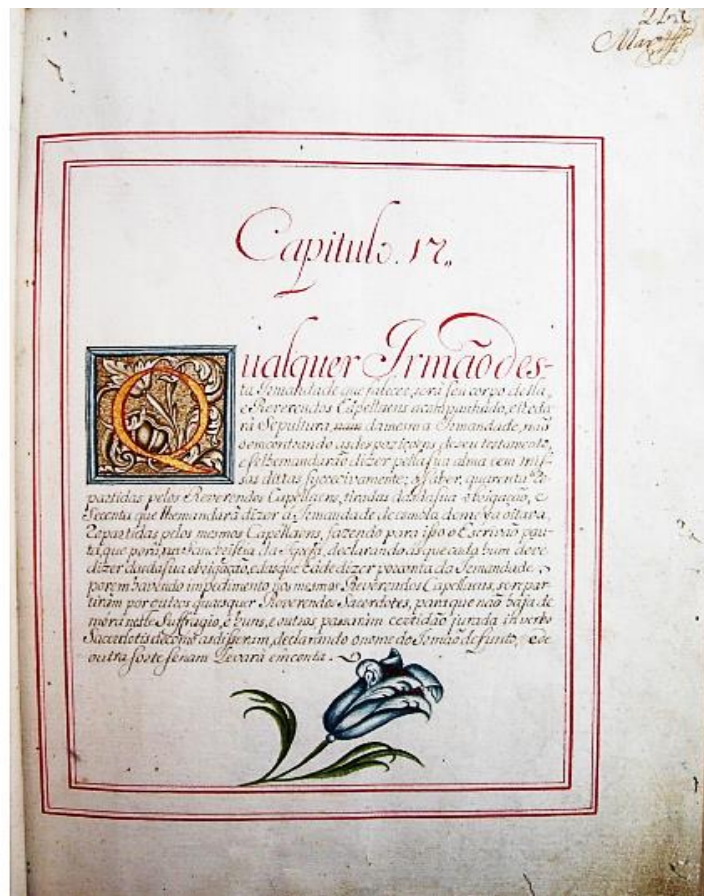 Capitulo. 17,,
Qualquer Irmão des-
ta Irmandade que falecer, será seu corpo della,
e Reverendos Capellaens acompanhado, e lhe da
rá Sepultura, da mesma Irmandade, não
o encontrando as despoziçoens de seu testamento,
e se lhe mandarão dizer pella sua alma cem mis-
sas ditas sucecivamente; a saber, quarenta re
partidas pelos Reverendos Capellaens, tiradas da da sua obrigação, e
secenta que lhe mandará dizer a Irmandade de esmola de meya oitava,
repartidas pelos mesmos Capellaens, fazendo para isso o Escrivão pau
ta, que porá na Sancristia da Igreja, declarando as que cada hum deve
dizer da da sua obrigação, e das que ha de dizer por conta da Irmandade
porem havendo impedimento nos mesmos Reverendos Capellaens, se repar
tiram por outros quaisquer Reverendos Sacerdotes, para que não haja de
mora neste Suffragio, e huns, e outros passarám certidão jurada in verbo
Sacerdotis de como as disseram, declarando o nome do Irmão defunto, e de
outra sorte se nam levará em conta.